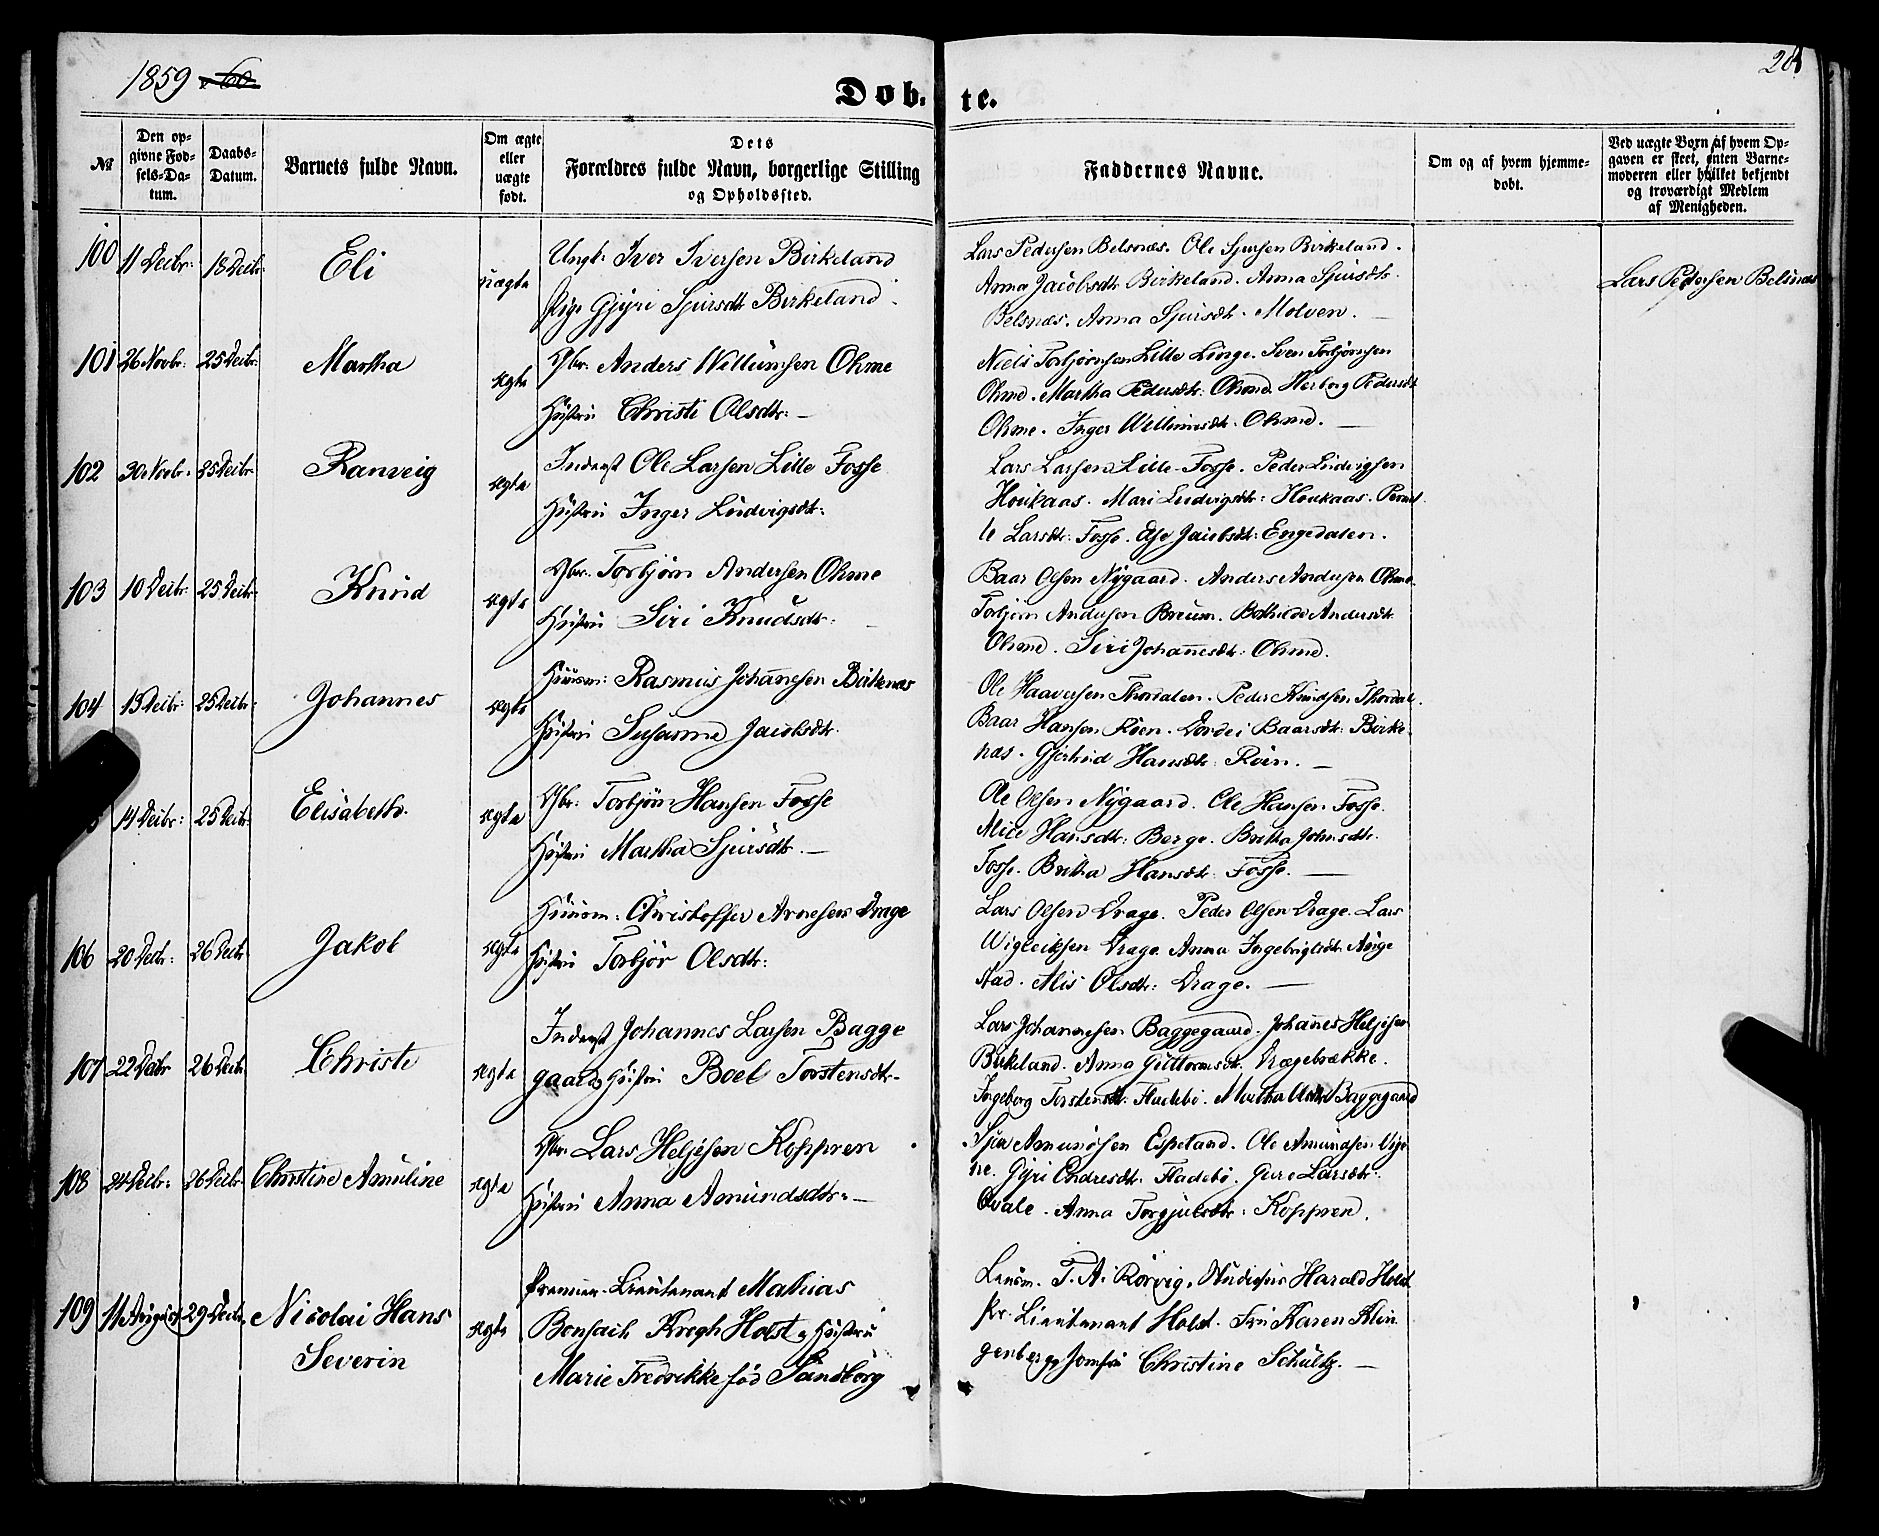 1859 - 60
26
Døb- te.
№
Den op-
givne Fød-
sels-Da-
tum.
Daabs-
Datum.
Barnets fulde Navn.
Om ægte
eller
uægte
født.
Dets
Forældres fulde Navn, borgerlige Stilling
og Opholdssted.
Faddernes Navne.
Om og af hvem hjemme-
døbt.
Ved uægte Børn af hvem Op-
gaven er skeet, enten Barne-
moderen eller hvilket bekjendt
og troværdigt Medlem
af Menigheden.
100 11 Decbr: 18 Decbr: Eli uægte
Ungk: Iver Iversen Birkeland
Pige Gjyri Sjursdtr Birkeland
Lars Pedersen Belsnæs. Ole Sjursen Birkeland.
Anna Jacobsdtr Birkeland. Anna Sjursdtr
Belsnæs. Anna Sjursdtr. Molven.
Lars Pedersen Belsnæs
101 26 Novbr: 25 Decbr: Martha ægte
Gbr. Anders Willumsen Ohme
Hustru Christi Olsdtr:
Niels Torbjørnsen Lille Linge. Sven Torbjørnsen
Ohme. Martha Pedersdtr. Ohme. Herborg Pedersdt
Ohme. Inger Willumsdtr. Ohme.
102 30 Novbr. 25 Decbr Ranveig ægte
Inderst Ole Larsen Lille Fosse
Hustru Inger Ludvigsdtr:
Lars Larsen Lille Fosse. Peder Ludvigsen
Houkaas. Mari Ludvigsdtr: Houkaas. Pernil
le Larsdtr: Fosse. Jacobsdtr: Engedalen.
103 10 Decbr: 25 Decbr: Knud ægte
Gbr. Torbjørn Andersen Ohme
Hustru Siri Knudsdtr:
Baar Olsen Nygaard. Anders Andersen Ohme.
Torbjørn Andersen Breum. Bothilde Andersdtr
Ohme. Siri Johannesdtr: Ohme.
104 13 Decbr: 25 Decbr: Johannes ægte
Huusm: Rasmus Johannesen Birkenæs
Hustru Susanne Jacobsdtr.
Ole Haaversen Thordalen. Peder Knudsen Thordal.
Baar Hansen Röen. Dordei Baarsdtr: Birke
næs. Gjertrud Hansdtr: Röen.
14 Decbr: 25 Decbr: Elisabeth. ægte
Gbr: Torbjörn Hansen Fosse
Hustru Martha Sjursdtr.
Ole Olsen Nygaard. Ole Hansen Fosse.
Mile Hansdtr: Berge. Britha Johnsdtr.
Fosse. Britha Hansdtr. Fosse.
106 20 Decbr: 26 Decbr Jakob ægte
Huusm: Christoffer Arnesen Drage
Hustru Torbjør Olsdtr:
Lars Olsen Drage. Peder Olsen Drage. Lars
Wigleiksen Drage. Anna Ingebrigtsdtr Auge
stad. Alis Olsdtr: Drage.
107 22 Decbr 26 Decbr Christi ægte
Inderst Johannes Larsen Bagge
gaard, Hustru Boel Torstensdtr.
Lars Johannesen Baggegaard. Johannes Heljesen
Birkeland. Anna Guttormsdtr. Drægebrække.
Ingeborg Torstensdtr: Fladebö. Martha Baggegaard
108 24 Decbr: 26 Decbr Christine Amuline ægte
Gbr. Lars Heljesen Koppren
Hustru Anna Amundsdtr:
Sjur Amundsen Espeland. Ole Amundsen Vige
ne. Gjyri Endresdtr: Fladebö. Guro Larsdtr:
Qvale. Anna Torgjulsdtr: Koppren.
109 11 August 29 Decbr. Nicolai Hans
Severin ægte
Premier-Lieutenant Mathias
Bonsach Krogh Holst, Hustru
Marie Fredrikke fød Sandborg
Lensm. T. A. Rörvig. Studiosus Harald Holst
Pr. Lieutenant Holst. Fru Karen Klin
genberg Jomfru Christine Schultz.